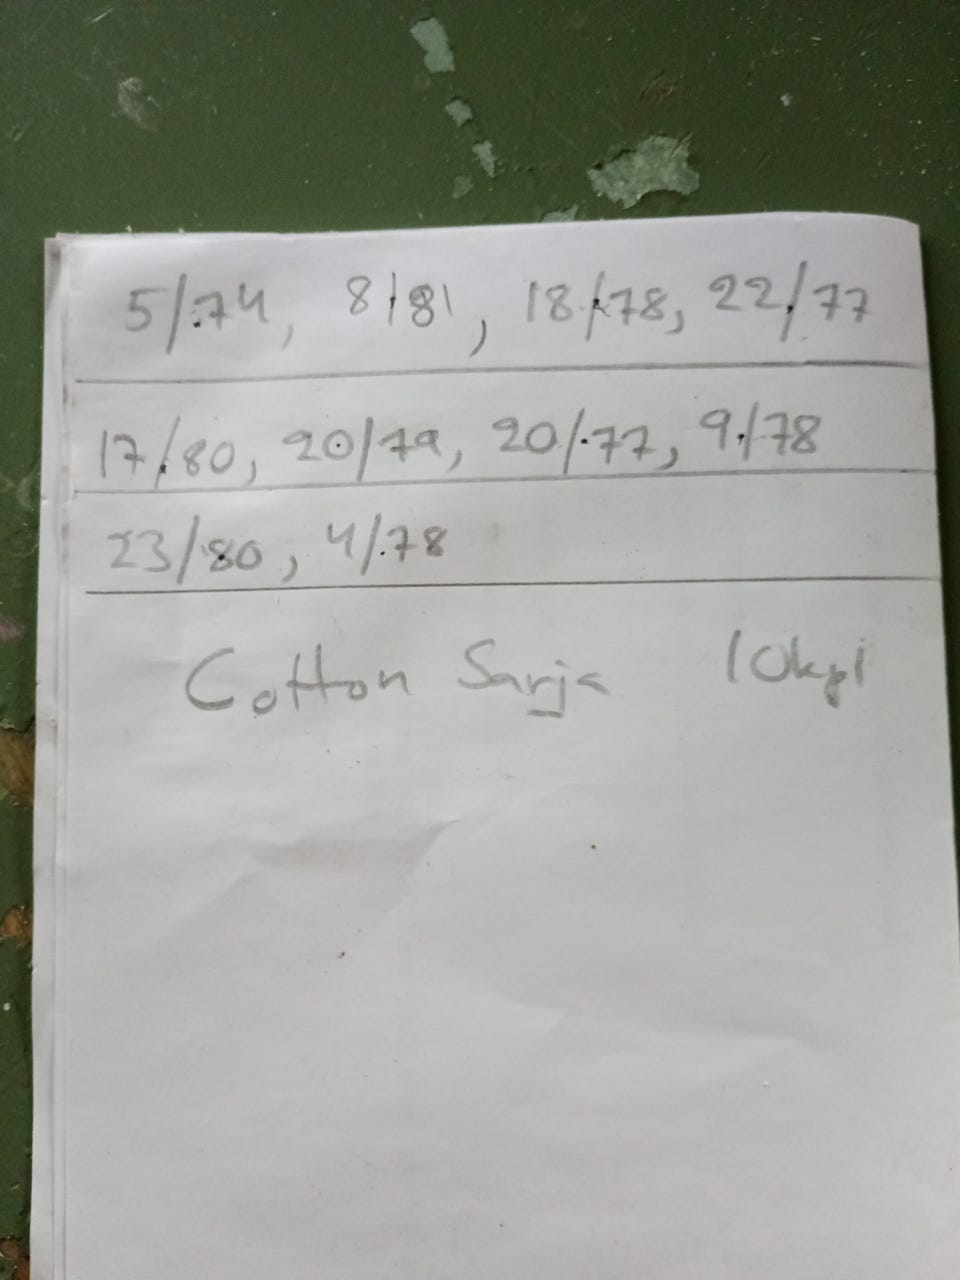 5/.74, 8/81, 18/78, 22/77
17/80, 20/79, 20/.77, 9/78
23/80, 4/.78
Cotton Sarja 10kpl